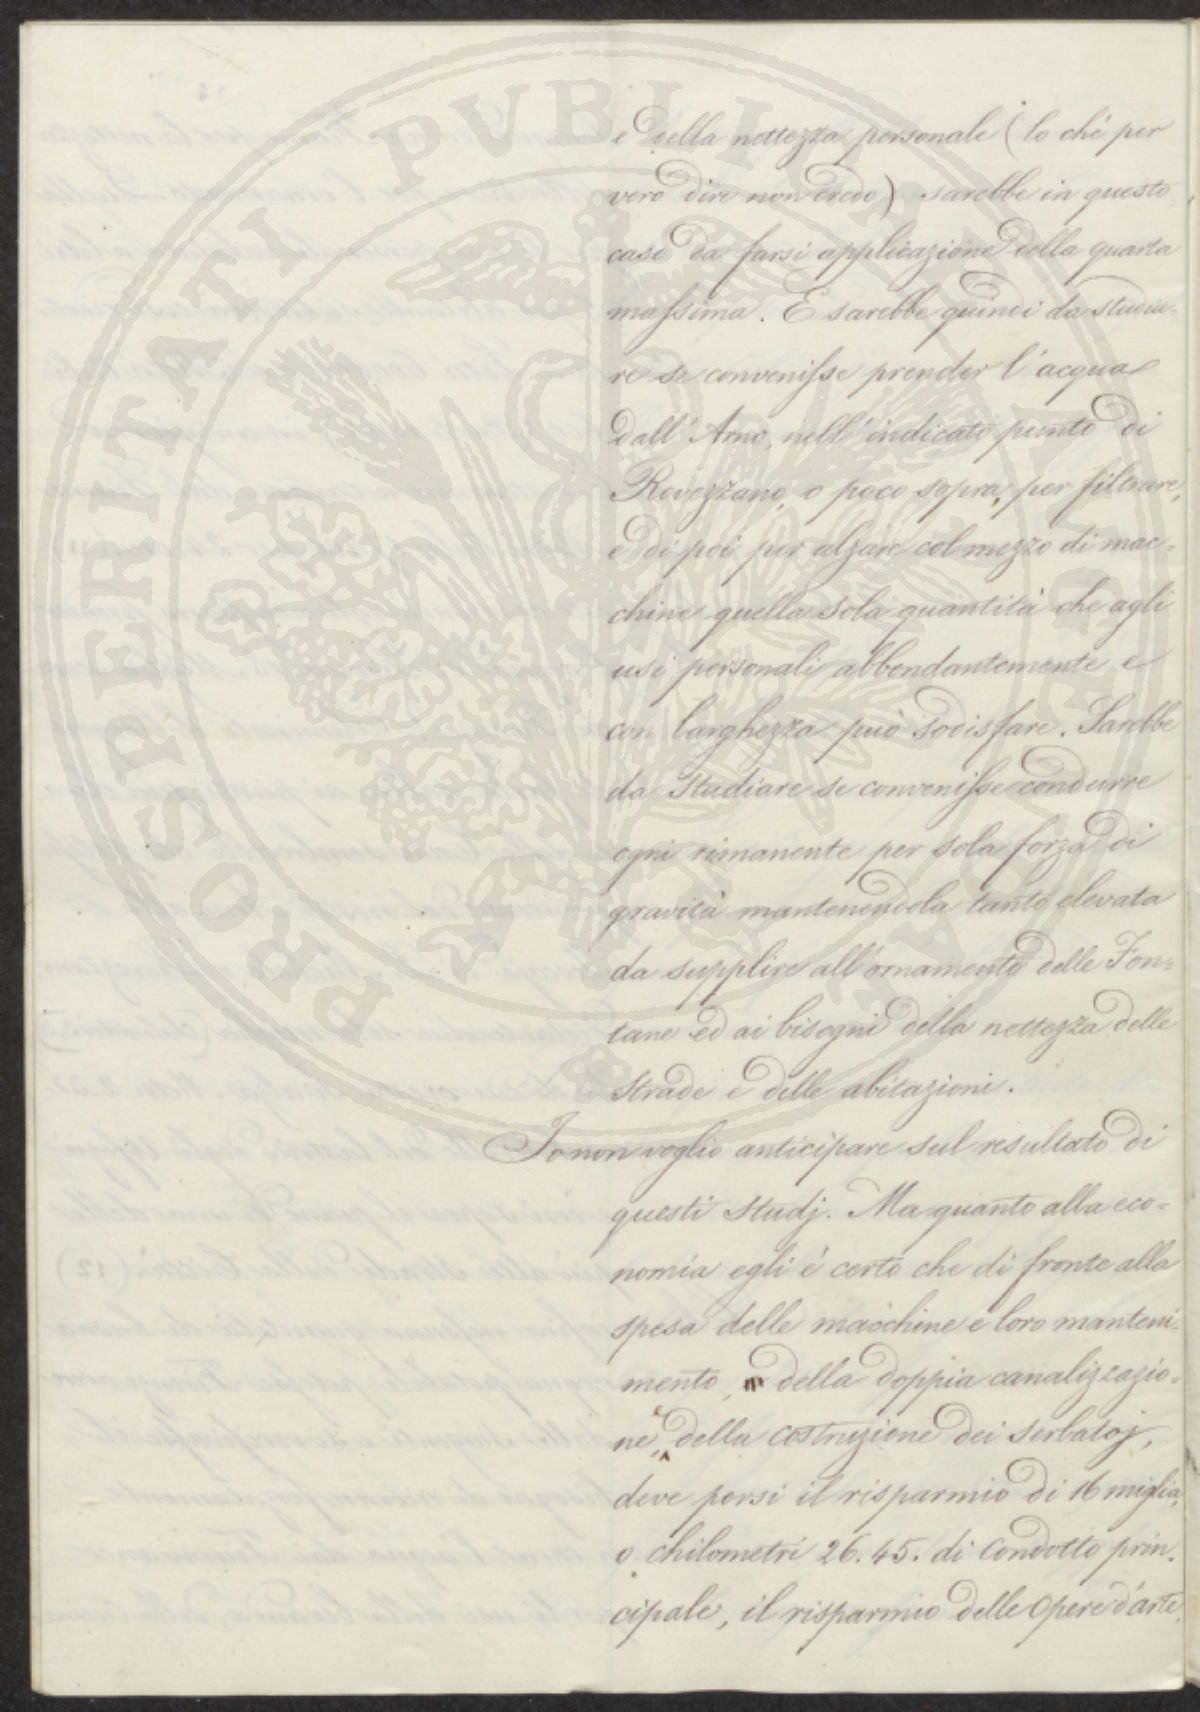 PROSPERITATI PVBLICAE AVGENDAE
e della nettezza personale (lo chè per
vero dire non credo) sarebbe in questo
caso da farsi applicazione della quarta
massima. E sarebbe quindi da studia-
re se convenisse prender l'acqua
dall'Arno, nell'indicato punto di
Rovezzano, o poco sopra, per filtrare,
e di poi per alzare col mezzo di mac-
chine quella sola quantità che agli
usi personali abbondantemente e
con larghezza può sodisfare. Sarebbe
da studiare se convenisse condurre
ogni rimanente per sola forza di
gravità mantenendola tanto elevata
da supplire all'ornamento delle Fon-
tane ed ai bisogni della nettezza delle
strade e delle abitazioni.
Io non voglio anticipare sul resultato di
questi studj. Ma quanto alla eco-
nomia egli è certo che di fronte alla
spesa delle macchine e loro manteni-
mento, della doppia canalizzazio-
ne, e della costruzione dei serbatoj,
deve porsi il risparmio di 16 miglia,
o chilometri 26.45. di condotto prin-
cipale, il risparmio delle opere d'arte,